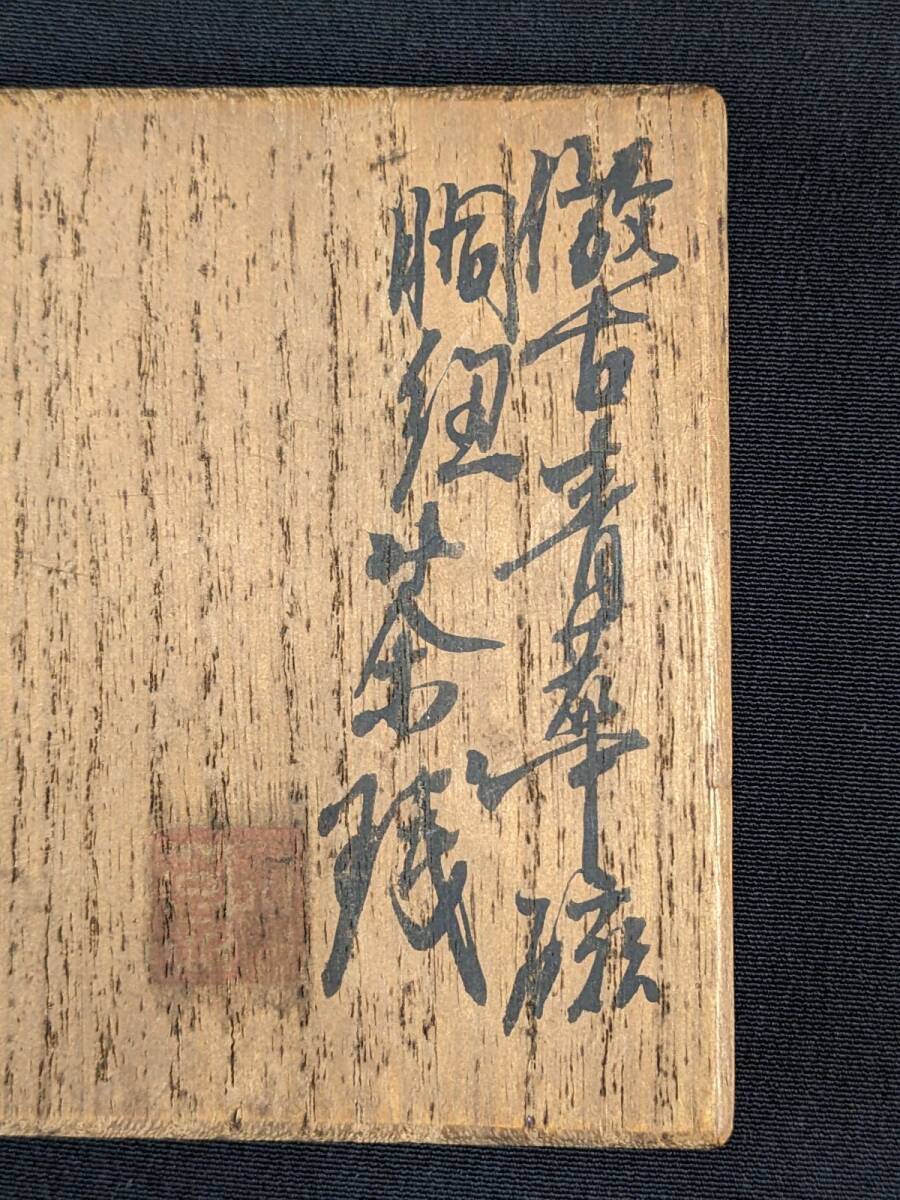 倣古青華磁
胴紐茶琖